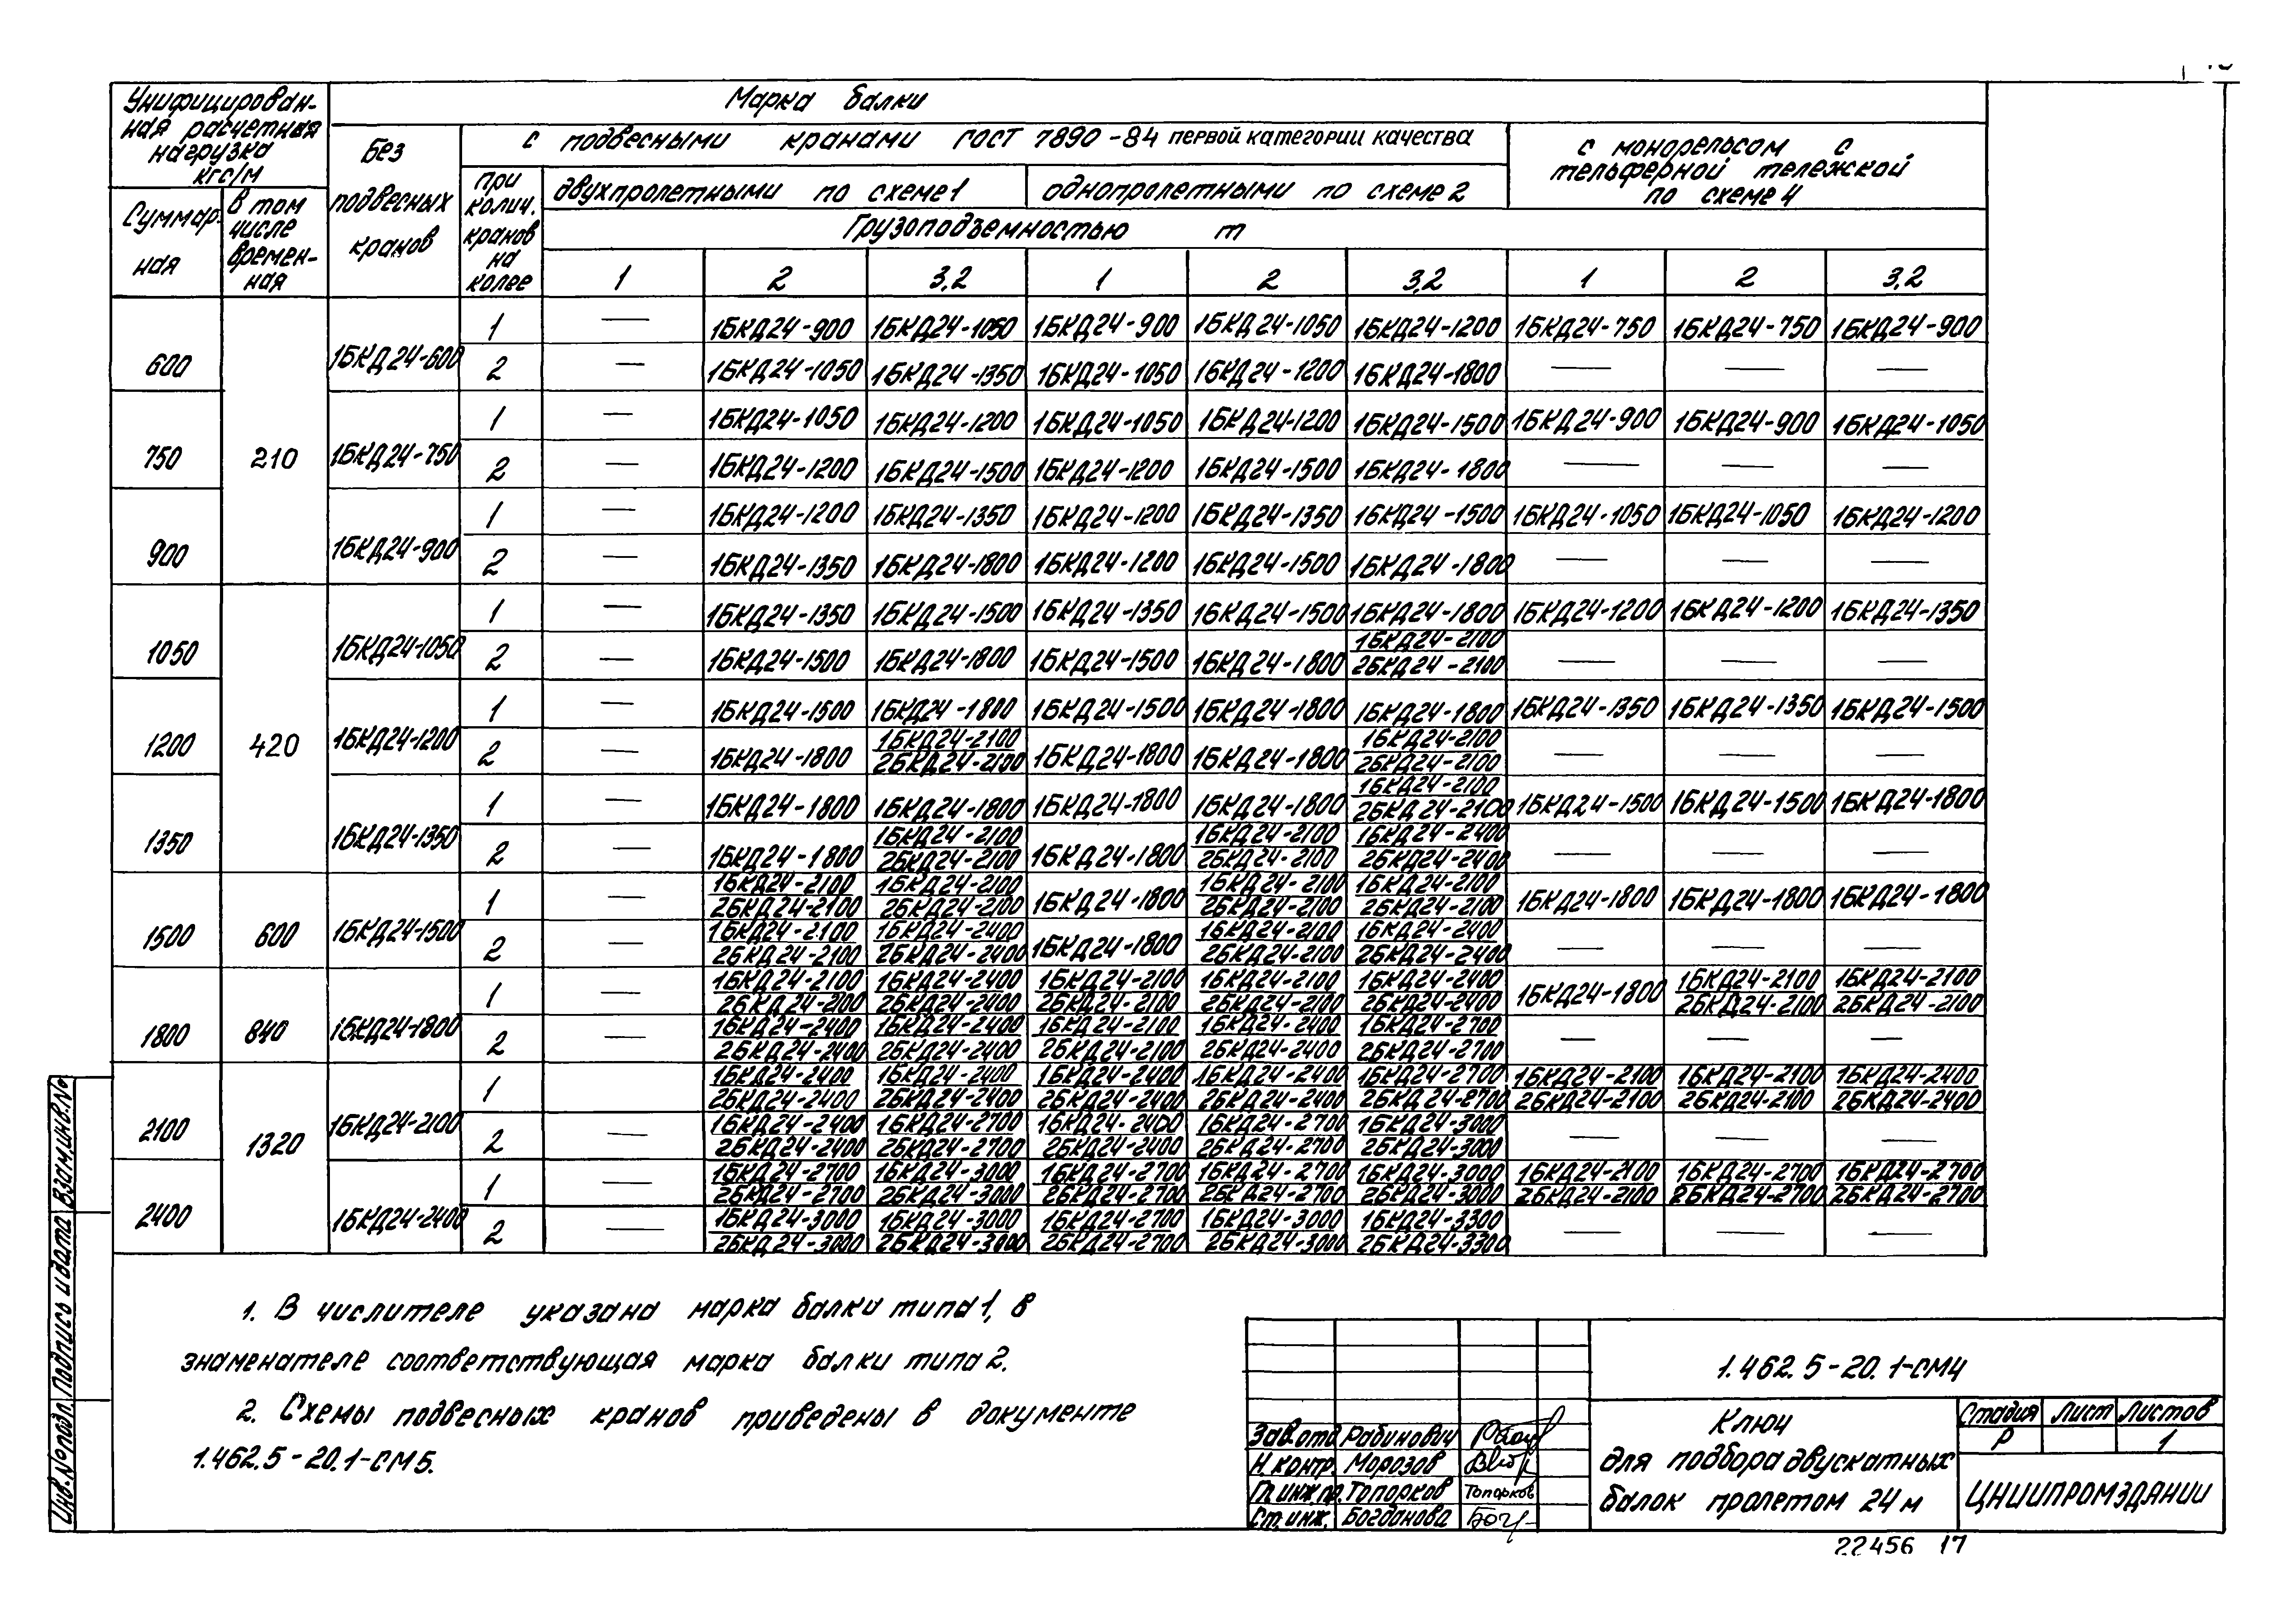 Унифицирован-
ная расчетная
нагрузка
кгс/м
Суммар-
ная
В том
числе
времен-
ная
Марка балки
Без
подвесных
кранов
с подвесными кранами ГОСТ 7890-84 первой категории качества
с монорельсом с
тельферной тележкой
по схеме 4
При
колич.
кранов
на
колее
двухпролетными по схеме 1 однопролетными по схеме 2
Грузоподъемностью т
1 2 3,2 1 2 3,2 1 2 3,2
600 210 1БКД24-600
1 — 1БКД24-900 1БКД24-1050 1БКД24-900 1БКД24-1050 1БКД24-1200 1БКД24-750 1БКД24-750 1БКД24-900
2 — 1БКД24-1050 1БКД24-1350 1БКД24-1050 1БКД24-1200 1БКД24-1800 — — —
750 1БКД24-750
1 — 1БКД24-1050 1БКД24-1200 1БКД24-1050 1БКД24-1200 1БКД24-1500 1БКД24-900 1БКД24-900 1БКД24-1050
2 — 1БКД24-1200 1БКД24-1500 1БКД24-1200 1БКД24-1500 1БКД24-1800 — — —
900 1БКД24-900
1 — 1БКД24-1200 1БКД24-1350 1БКД24-1200 1БКД24-1350 1БКД24-1500 1БКД24-1050 1БКД24-1050 1БКД24-1200
2 — 1БКД24-1350 1БКД24-1800 1БКД24-1200 1БКД24-1500 1БКД24-1800 — — —
1050 420 1БКД24-1050
1 — 1БКД24-1350 1БКД24-1500 1БКД24-1350 1БКД24-1500 1БКД24-1800 1БКД24-1200 1БКД24-1200 1БКД24-1350
2 — 1БКД24-1500 1БКД24-1800 1БКД24-1500 1БКД24-1800 1БКД24-2100/2БКД24-2100 — — —
1200 1БКД24-1200
1 — 1БКД24-1500 1БКД24-1800 1БКД24-1500 1БКД24-1800 1БКД24-1800 1БКД24-1350 1БКД24-1350 1БКД24-1500
2 — 1БКД24-1800 1БКД24-2100/2БКД24-2100 1БКД24-1800 1БКД24-1800 1БКД24-2100/2БКД24-2100 — — —
1350 1БКД24-1350
1 — 1БКД24-1800 1БКД24-1800 1БКД24-1800 1БКД24-1800 1БКД24-2100/2БКД24-2100 1БКД24-1500 1БКД24-1500 1БКД24-1800
2 — 1БКД24-1800 1БКД24-2100/2БКД24-2100 1БКД24-1800 1БКД24-2100/2БКД24-2100 1БКД24-2400/2БКД24-2400 — — —
1500 600 1БКД24-1500
1 — 1БКД24-2100/2БКД24-2100 1БКД24-2100/2БКД24-2100 1БКД24-1800 1БКД24-2100/2БКД24-2100 1БКД24-2100/2БКД24-2100 1БКД24-1800 1БКД24-1800 1БКД24-1800
2 — 1БКД24-2100/2БКД24-2100 1БКД24-2400/2БКД24-2400 1БКД24-1800 1БКД24-2100/2БКД24-2100 1БКД24-2400/2БКД24-2400 — — —
1800 840 1БКД24-1800
1 — 1БКД24-2100/2БКД24-2100 1БКД24-2400/2БКД24-2400 1БКД24-2100/2БКД24-2100 1БКД24-2100/2БКД24-2100 1БКД24-2400/2БКД24-2400 1БКД24-1800 1БКД24-2100/2БКД24-2100 1БКД24-2100/2БКД24-2100
2 — 1БКД24-2400/2БКД24-2400 1БКД24-2400/2БКД24-2400 1БКД24-2100/2БКД24-2100 1БКД24-2400/2БКД24-2400 1БКД24-2700/2БКД24-2700 — — —
2100 1320 1БКД24-2100
1 1БКД24-2400/2БКД24-2400 1БКД24-2400/2БКД24-2400 1БКД24-2400/2БКД24-2400 1БКД24-2400/2БКД24-2400 1БКД24-2700/2БКД24-2700 1БКД24-2100/2БКД24-2100 1БКД24-2100/2БКД24-2100 1БКД24-2400/2БКД24-2400
2 — 1БКД24-2400/2БКД24-2400 1БКД24-2700/2БКД24-2700 1БКД24-2400/2БКД24-2400 1БКД24-2700/2БКД24-2700 1БКД24-3000/2БКД24-3000 — — —
2400 1БКД24-2400
1 — 1БКД24-2700/2БКД24-2700 1БКД24-3000/2БКД24-3000 1БКД24-2700/2БКД24-2700 1БКД24-2700/2БКД24-2700 1БКД24-3000/2БКД24-3000 1БКД24-2100/2БКД24-2100 1БКД24-2700/2БКД24-2700 1БКД24-2700/2БКД24-2700
2 — 1БКД24-3000/2БКД24-3000 1БКД24-3000/2БКД24-3000 1БКД24-2700/2БКД24-2700 1БКД24-3000/2БКД24-3000 1БКД24-3300/2БКД24-3300 — — —
1. В числителе указана марка балки типа 1, в
знаменателе соответствующая марка балки типа 2.
2. Схемы подвесных кранов приведены в документе
1.462.5-20.1-СМ5.
Инв.№ подл. Подпись и дата Взам.инв.№
1.462.5-20.1-СМ4
Зав.отд. Рабинович
Н.контр. Морозов
Гл.инж.пр. Топорков Топорков
Ст.инж. Богданова
Ключ
для подбора двускатных
балок пролетом 24 м
Стадия Лист Листов
Р 1
ЦНИИПРОМЗДАНИИ
22456 17